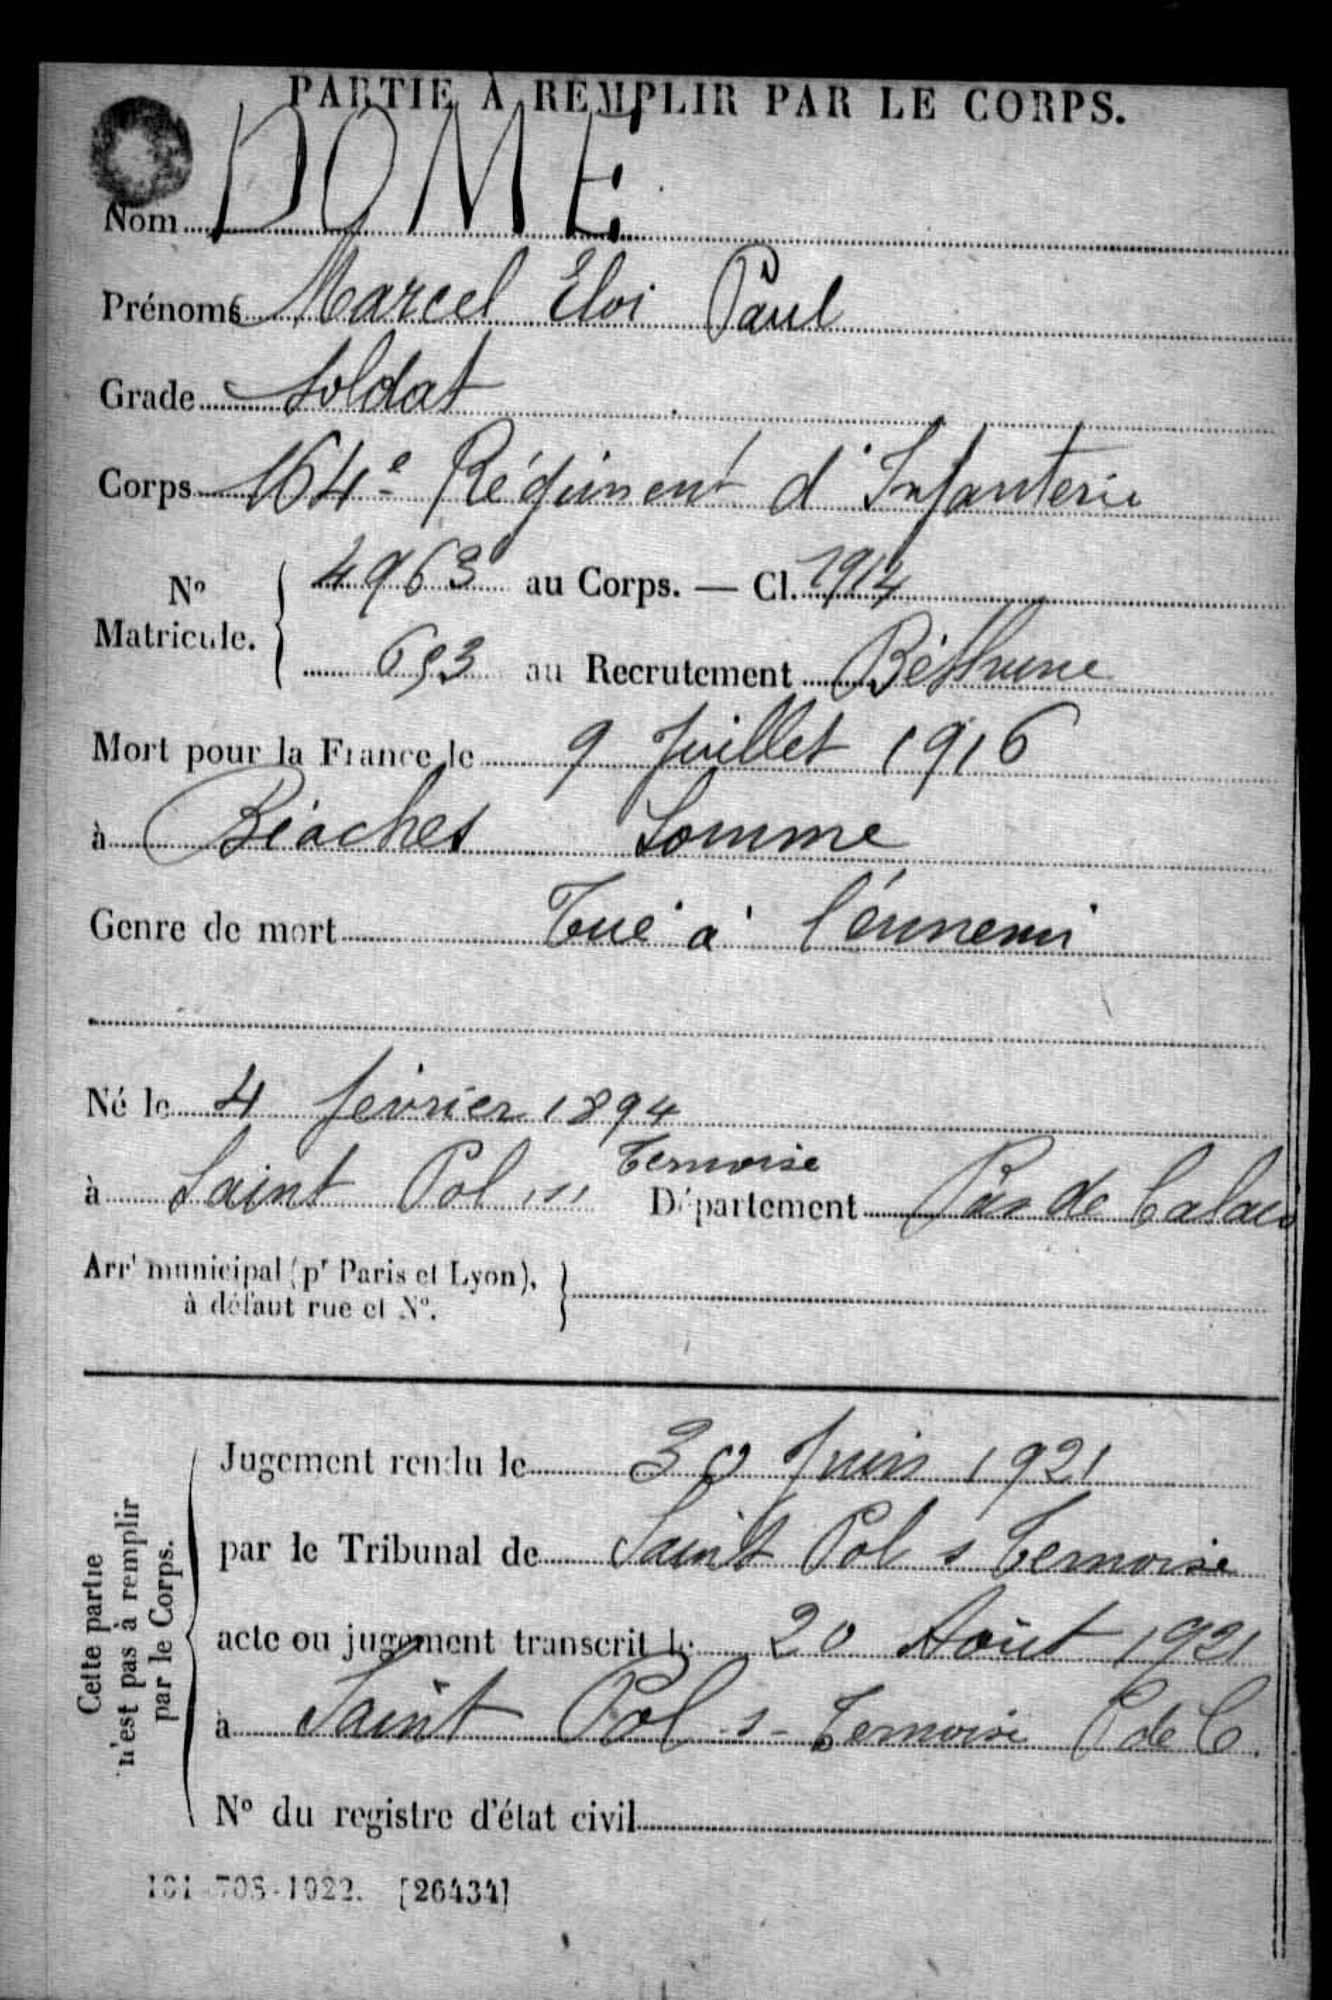 PARTIE À REMPLIR PAR LE CORPS.
Nom DOME
Prénoms Marcel Eloi Paul
Grade Soldat
Corps 164e Régiment d'Infanterie
No Matricule. { 4963 au Corps. — Cl. 1914
693 au Recrutement Béthune
Mort pour la France le 9 Juillet 1916
à Biaches Somme
Genre de mort Tué à l'énnemi
Né le 4 février 1894
à Saint Pol s/ Ternoise Département Pas de Calais
Arrt municipal (pr Paris et Lyon), à défaut rue et No. }
Cette partie n'est pas à remplir par le Corps.
Jugement rendu le 30 Juin 1921
par le Tribunal de Saint Pol s Ternoise
acte ou jugement transcrit le 20 Août 1921
à Saint Pol s- Ternoise P de C.
No du registre d'état civil
101-708-1922. [26434]